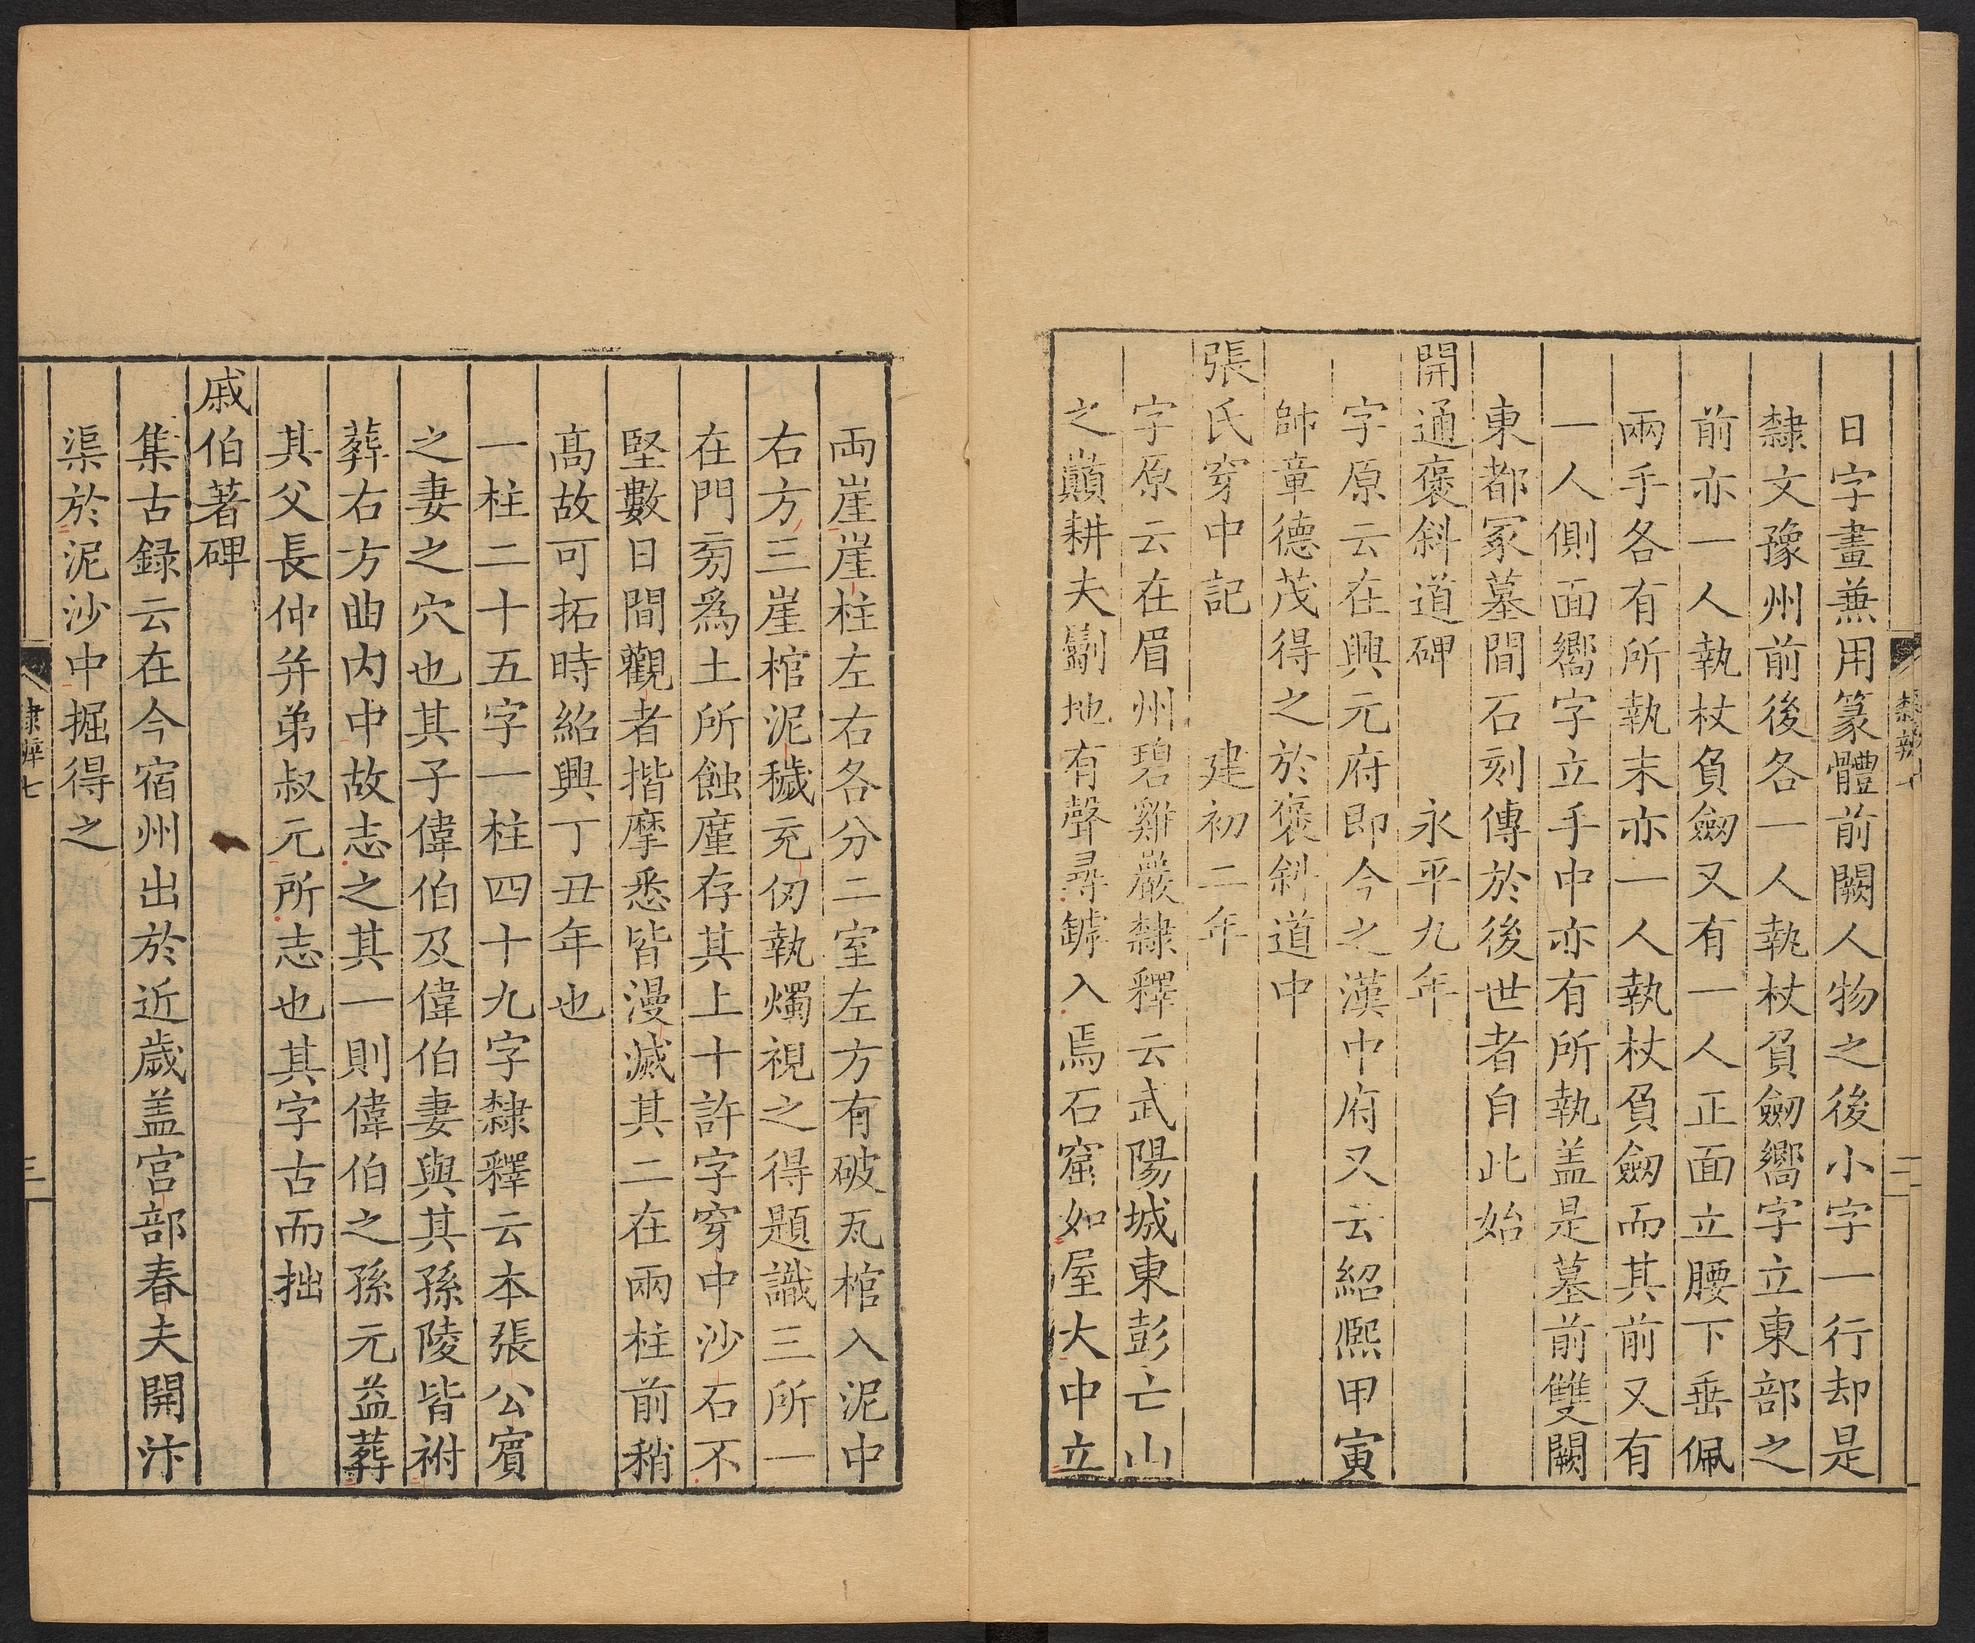 隸辨七
二
日字畫兼用篆體前闕人物之後小字一行却是
隸文豫州前後各一人執杖負劔嚮字立東部之
前亦一人執杖負劔又有一人正面立腰下垂佩
兩手各有所執末亦一人執杖負劔而其前又有
一人側面嚮字立手中亦有所執盖是墓前雙闕
東都冢墓間石刻傳於後世者自此始
開通褒斜道碑 永平九年
字原云在興元府即今之漢中府又云紹熈甲寅
帥章德茂得之於褒斜道中
張氏穿中記 建初二年
字原云在眉州碧雞巖隸釋云武陽城東彭亡山
之巔耕夫劚地有聲尋罅入焉石窟如屋大中立
兩崖崖柱左右各分二室左方有破瓦棺入泥中
右方三崖棺泥穢充仞執燭視之得題識三所一
在門旁爲土所蝕廑存其上十許字穿中沙石不
堅數日間觀者揩摩悉皆漫滅其二在兩柱前稍
髙故可拓時紹興丁丑年也
一柱二十五字一柱四十九字隸釋云本張公賓
之妻之穴也其子偉伯及偉伯妻與其孫陵皆祔
葬右方曲内中故志之其一則偉伯之孫元益葬
其父長仲并弟叔元所志也其字古而拙
戚伯著碑
集古録云在今宿州出於近歲盖宫部春夫開汴
渠於泥沙中掘得之
隸辨七
三